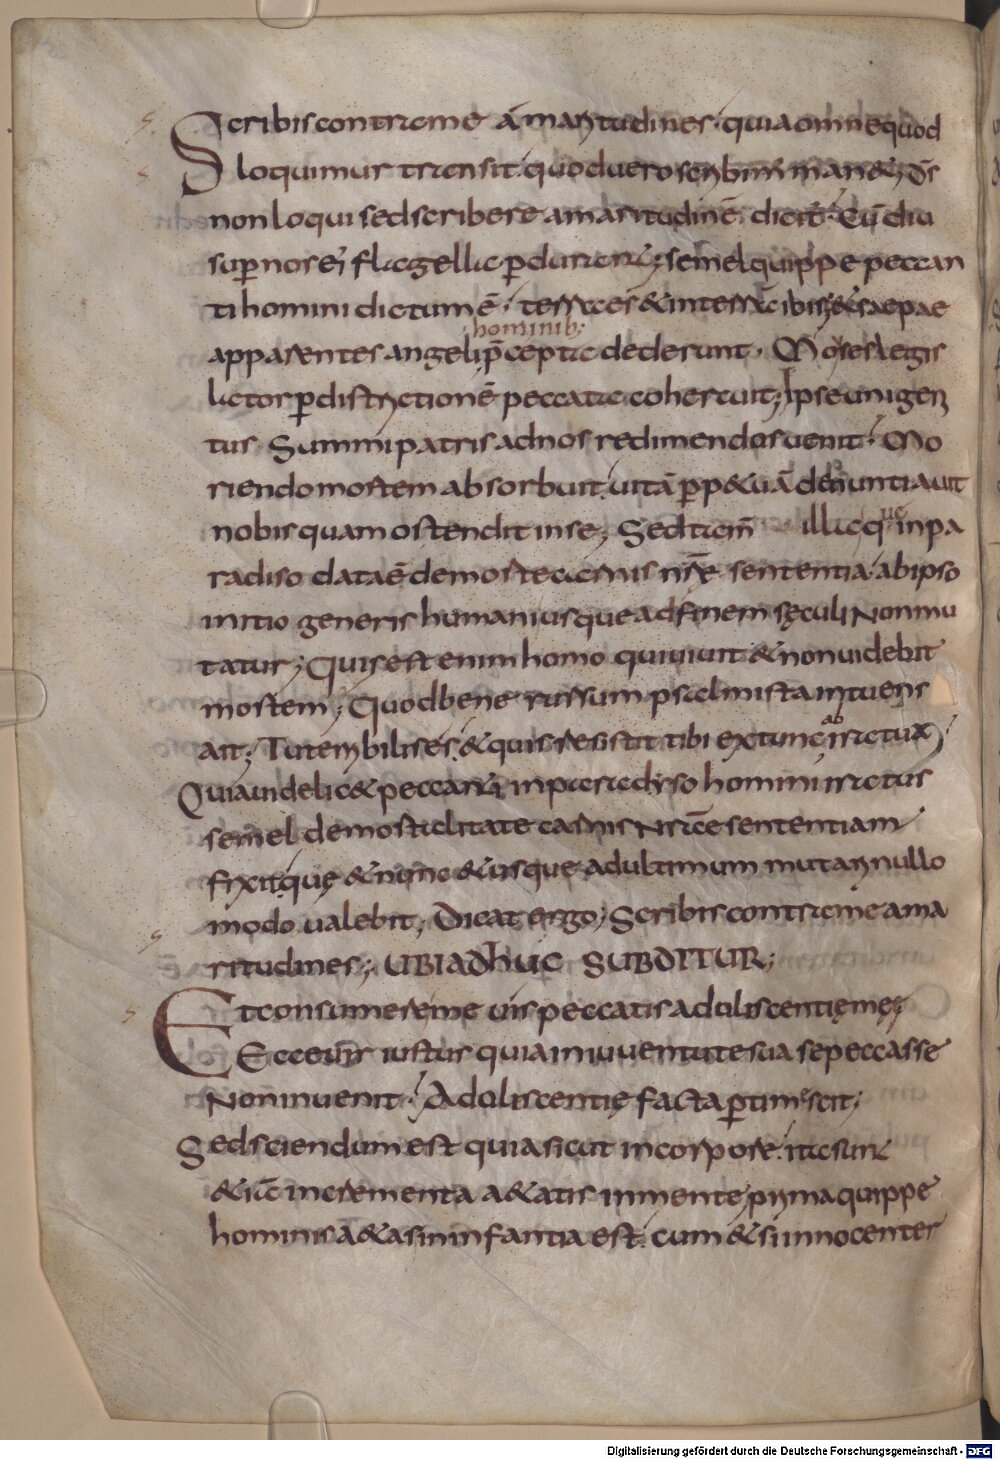 Scribis contra me amaritudines. quia omne quod
loquimur transit. quod uero scribim manet, ds
non loqui sed scribere amaritudinē dicit. Cū diu
sup nos ei flagella pdurant; semel quippe peccan
ti homini dictum ē. terra es & in terrā ibis; & saepae
hominib;
apparentes angeli p̄cepta dederunt. Moyses legis
lator p districtionē peccata cohercuit; Ipse unigeni
tus Summi patris ad nos redimendos uenit. Mo
riendo mortem absorbuit. uitā ppetuā denuntiauit
nobis quam ostendit in se; Sed tam̄ illa q ue in pa
radiso data ē de morte carnis nr̄ae sententia. ab ipso
initio generis humani usque ad finem sęculi Non mu
tatur; Quis est enim homo qui uiuit & non uidebit
mortem; Quod bene rursum psalmista intuens
ait; Tu terribilis es. & quis resistit tibi ex tunc ab ira tua;
Quia uidelicet peccanti in paradyso homini iratus
semel de mortalitate carnis Nr̄ae sententiam
fixit. quę & nunc & usque ad ultimum mutari nullo
modo ualebit; Dicat ergo; Scribis contra me ama
ritudines; UBI ADHUC SUBDITUR;
Et consumere me uis peccatis adoliscentię meę;
Ecce uir iustus quia in iuuentute sua se peccasse
Non inuenit. Adoliscentię facta ptimescit;
Sed sciendum est quia sicut in corpore. ita sunt
& iā incrementa aetatis in mente; prima quippe
hominis aetas in infantia est. cum & si innocenter
Digitalisierung gefördert durch die Deutsche Forschungsgemeinschaft - DFG